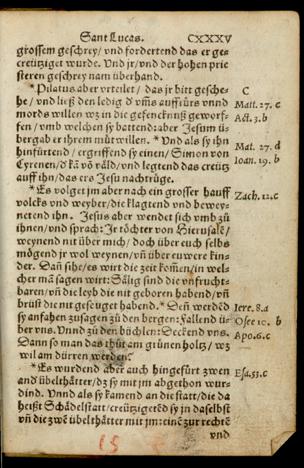 Sant Lucas. CXXXV
grossem geschrey/ vnd fordertend das er ge-
creütziget wurde. Vnd jr/ vnd der hohen prie
steren geschrey nam überhand.
*Pilatus aber vrteilet/ das jr bitt gesche- C
he/ vnd ließ den ledig d vm̄s auffrůrs vnnd Matt. 27. c
mords willen wz in die gefencknuß geworf- Act. 3. b
fen/ vmb welchen sy battend: aber Jesum ü-
bergab er ihrem můtwillen. *Vnd als sy ihn Mat. 27. d
hinfürtend/ ergriffend sy einen/ Simon von Ioan. 19. b
Cyrenen/ d̄ kā võ vāld/ vnd legtend das creütz
auff ihn/ das ers Jesu nachtrüge.
*Es volget jm aber nach ein grosser hauff Zach. 12. c
volcks vnd weyber/ die klagtend vnd bewey-
netend ihn. Jesus aber wendet sich vmb zů
ihnen/ vnd sprach: Jr töchter von Hierusalē/
weynend nit über mich/ doch über euch selbs
mögend jr wol weynen/ vñ über euwere kin-
der. Dañ sihe/ es wirt die zeit kom̄en/ in wel-
cher mā sagen wirt: Sälig sind die vnfrucht-
baren/ vñ die leyb die nit geboren habend/ vñ
brüst die nit geseuget habend. *Deñ werdēd Iere. 8. a
sy anfahen zusagen zů den bergen: Fallend ü- Osee 10. b
ber vns. Vnnd zů den büchlen: Deckend vns. Apo. 6. c
Dann so man das thůt am grünen holtz/ wz
wil am dürren werden?
*Es wurdend aber auch hingefürt zwen Esa. 53. c
and' übelthätter/ dz sy mit jm abgethon wur-
dind. Vnnd als sy kamend an die statt/ die da
heißt Schädelstatt/ creützigetēd sy in daselbst
vñ die zwē übelthätter mit jm: einē zur rechtē
vnd
15